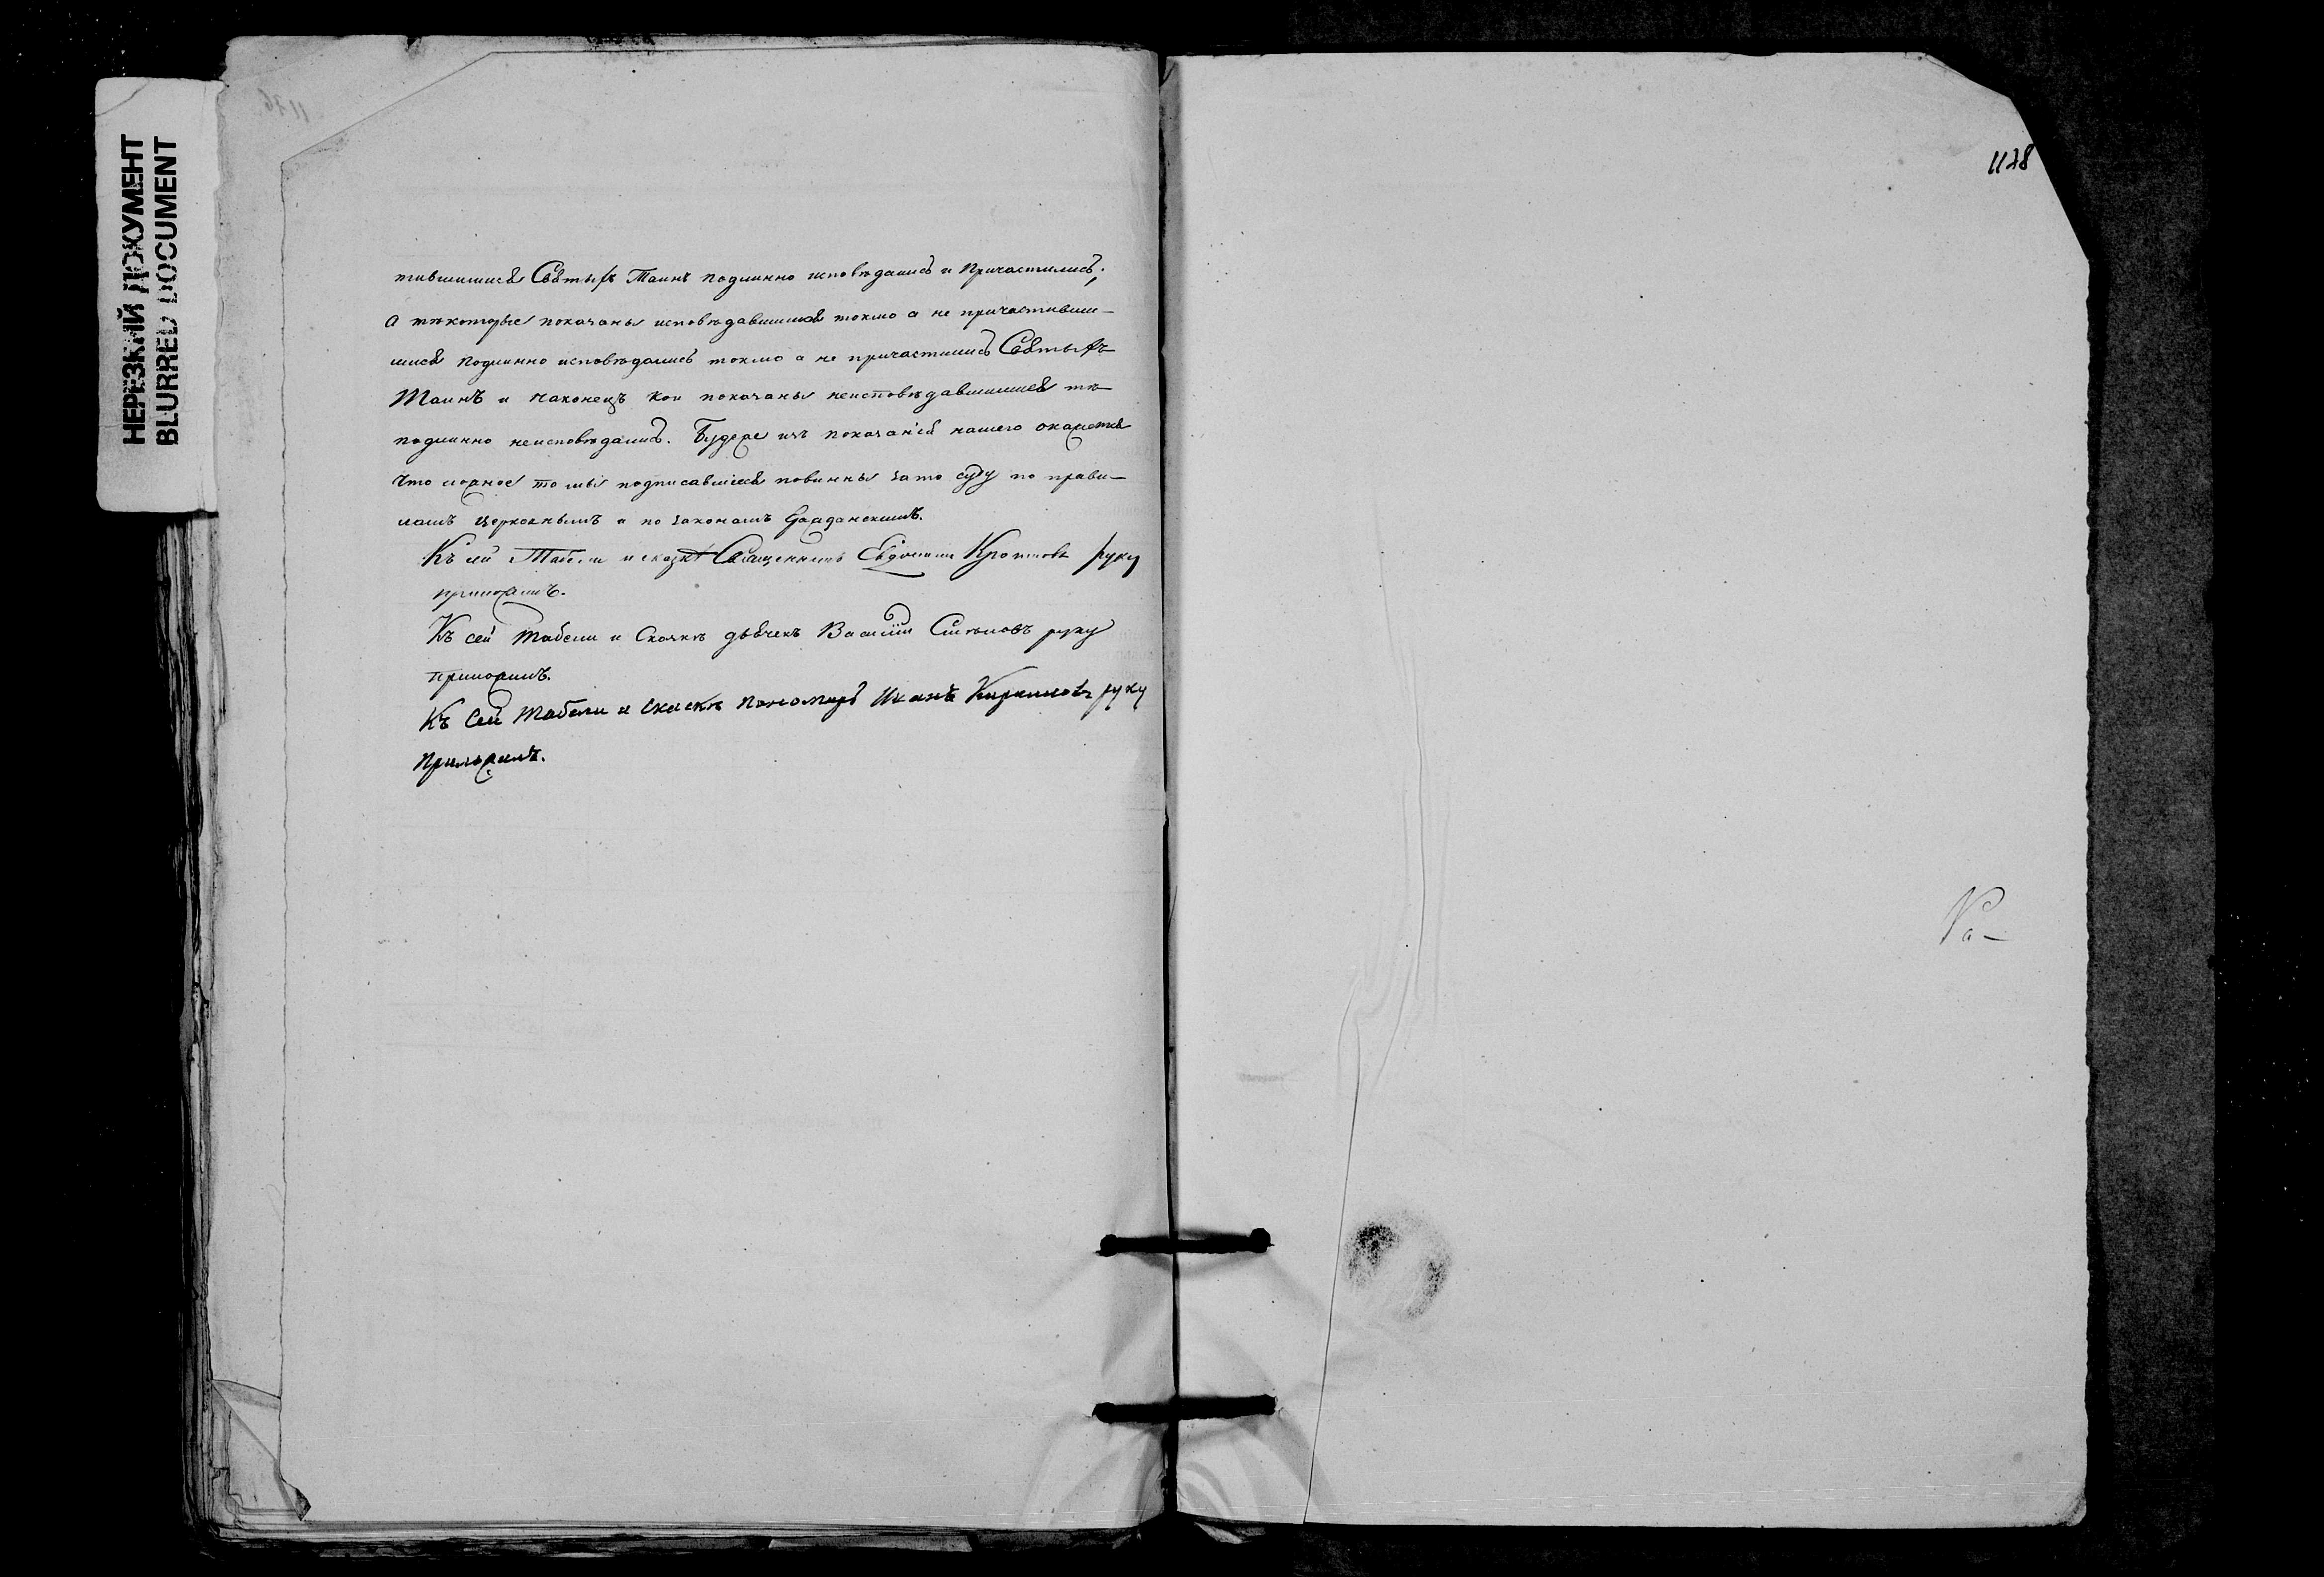 НЕРЕЗКИЙ ДОКУМЕНТ
BLURRED DOCUMENT
тившимися Святыхъ Таинъ подлинно исповѣдались и причастились,
а тѣ которые показаны исповѣдавшимися токмо а не причастивши-
мися подлинно исповѣдались токмо а не причастились Святыхъ
Таинъ и наконецъ кои показаны неисповѣдавшимися тѣ
подлинно неисповѣдались. Будеже изъ показанія нашего окажется
что ложное то мы подписавшіеся повинны зато суду по прави-
ламъ церковнымъ и по законамъ Гражданскимъ.
Къ сей Табели и сказкѣ Священникъ Евдоким руку
приложилъ.
Къ сей табели и Сказкѣ дьячекъ Василій руку
приложилъ.
Къ сей табели и скаскѣ пономарь Иванъ Кириловъ руку
приложилъ.
1178